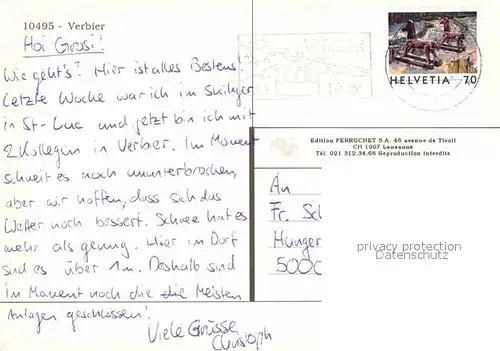 10495 - Verbier
Hoi Grosi!
Wie geht's? Hier ist alles Bestens!
Letzte Woche war ich im Skilager
in St-Luc und jetzt bin ich mit
2 Kollegen in Verbier. Im Moment
schneit es noch ununterbrochen,
aber wir hoffen, dass sich das
Wetter noch bessert. Schnee hat es
mehr als genug. Hier im Dorf
sind es über 1m. Deshalb sind
im Moment noch die die Meisten
Anlagen geschlossen!
Viele Grüsse
Christoph
HELVETIA 70
Edition PERROCHET S.A. 46 avenue de Tivoli
CH 1007 Lausanne
Tél. 021 312.34.66 Reproduction interdite
An
Fr. Sch
Hunger
500
privacy protection
Datenschutz